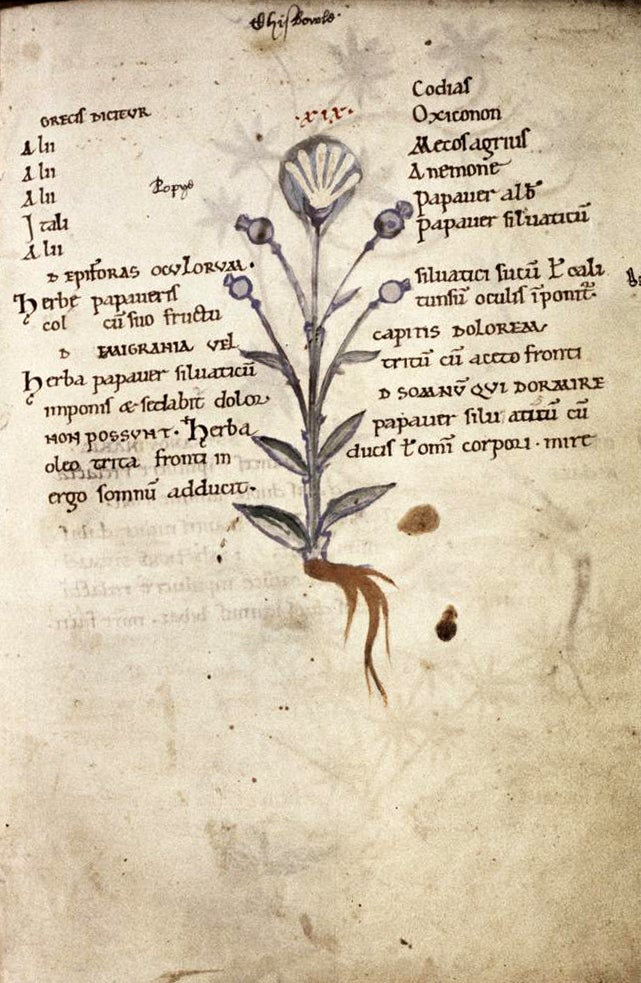 xix.
GRECIS DICITUR Codias
Alii Oxiconon
Alii Mecos agrius
Alii Anemone
Popye
Itali papauer alƀ
Alii papauer siluaticū
D EPIFORAS OCULORUM.
Herbe papaueris siluatici sucū ł cali
col cū suo fructu tunsū oculis īponit.
D EMIGRANIA VEL CAPITIS DOLOREM
Herba papauer siluaticū tritū cū aceto fronti
imponis & sedabit dolor
D SOMNŪ QUI DORMIRE
NON POSSUNT. Herba papauer siluaticū cū
oleo trita fronti in ducis ł omī corpori. mire
ergo somnū adducit.